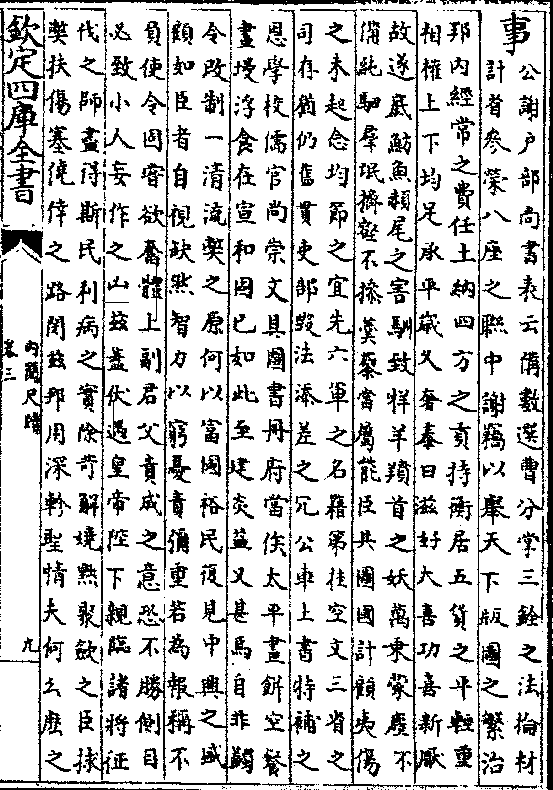 事
公謝戶部尚書表云備數選曹分掌三銓之法掄材
計省參榮八座之聯中謝竊以舉天下版圖之繁治
邦内經常之費任土納四方之貢持衡居五貨之平輕重
相權上下均足承平歲久奢泰日滋好大喜功喜新厭
故遂底魴魚赬尾之害馴致牂羊羵首之妖萬乘蒙塵不
備純駟羣氓擠壑不操囊槖當屬能臣具圖國計顧夷傷
之未起念均節之宜先六軍之名籍第挂空文三省之
司存猶仍舊貫吏部毀法添差之冗公車上書特補之
恩學校儒官尚崇文具圖書冊府當俟太平畫餅空餐
畫墁浮食在宣和固已如此至建炎益又甚焉自非蠲
令改制一清流弊之原何以富國裕民復見中興之盛
顧如臣者自視缺然智力以窮憂責彌重若為報稱不
負使令固當欲奮體上副君父責成之意恐不勝側目
必致小人妄作之山兹蓋伏遇皇帝陛下親臨諸將征
伐之師盡得斯民利病之實除苛解嬈黙聚斂之臣捄
弊扶傷塞僥倖之路閔兹邦用深軫聖情夫何么麽之
欽定四庫全書
内簡尺牘
卷三
九